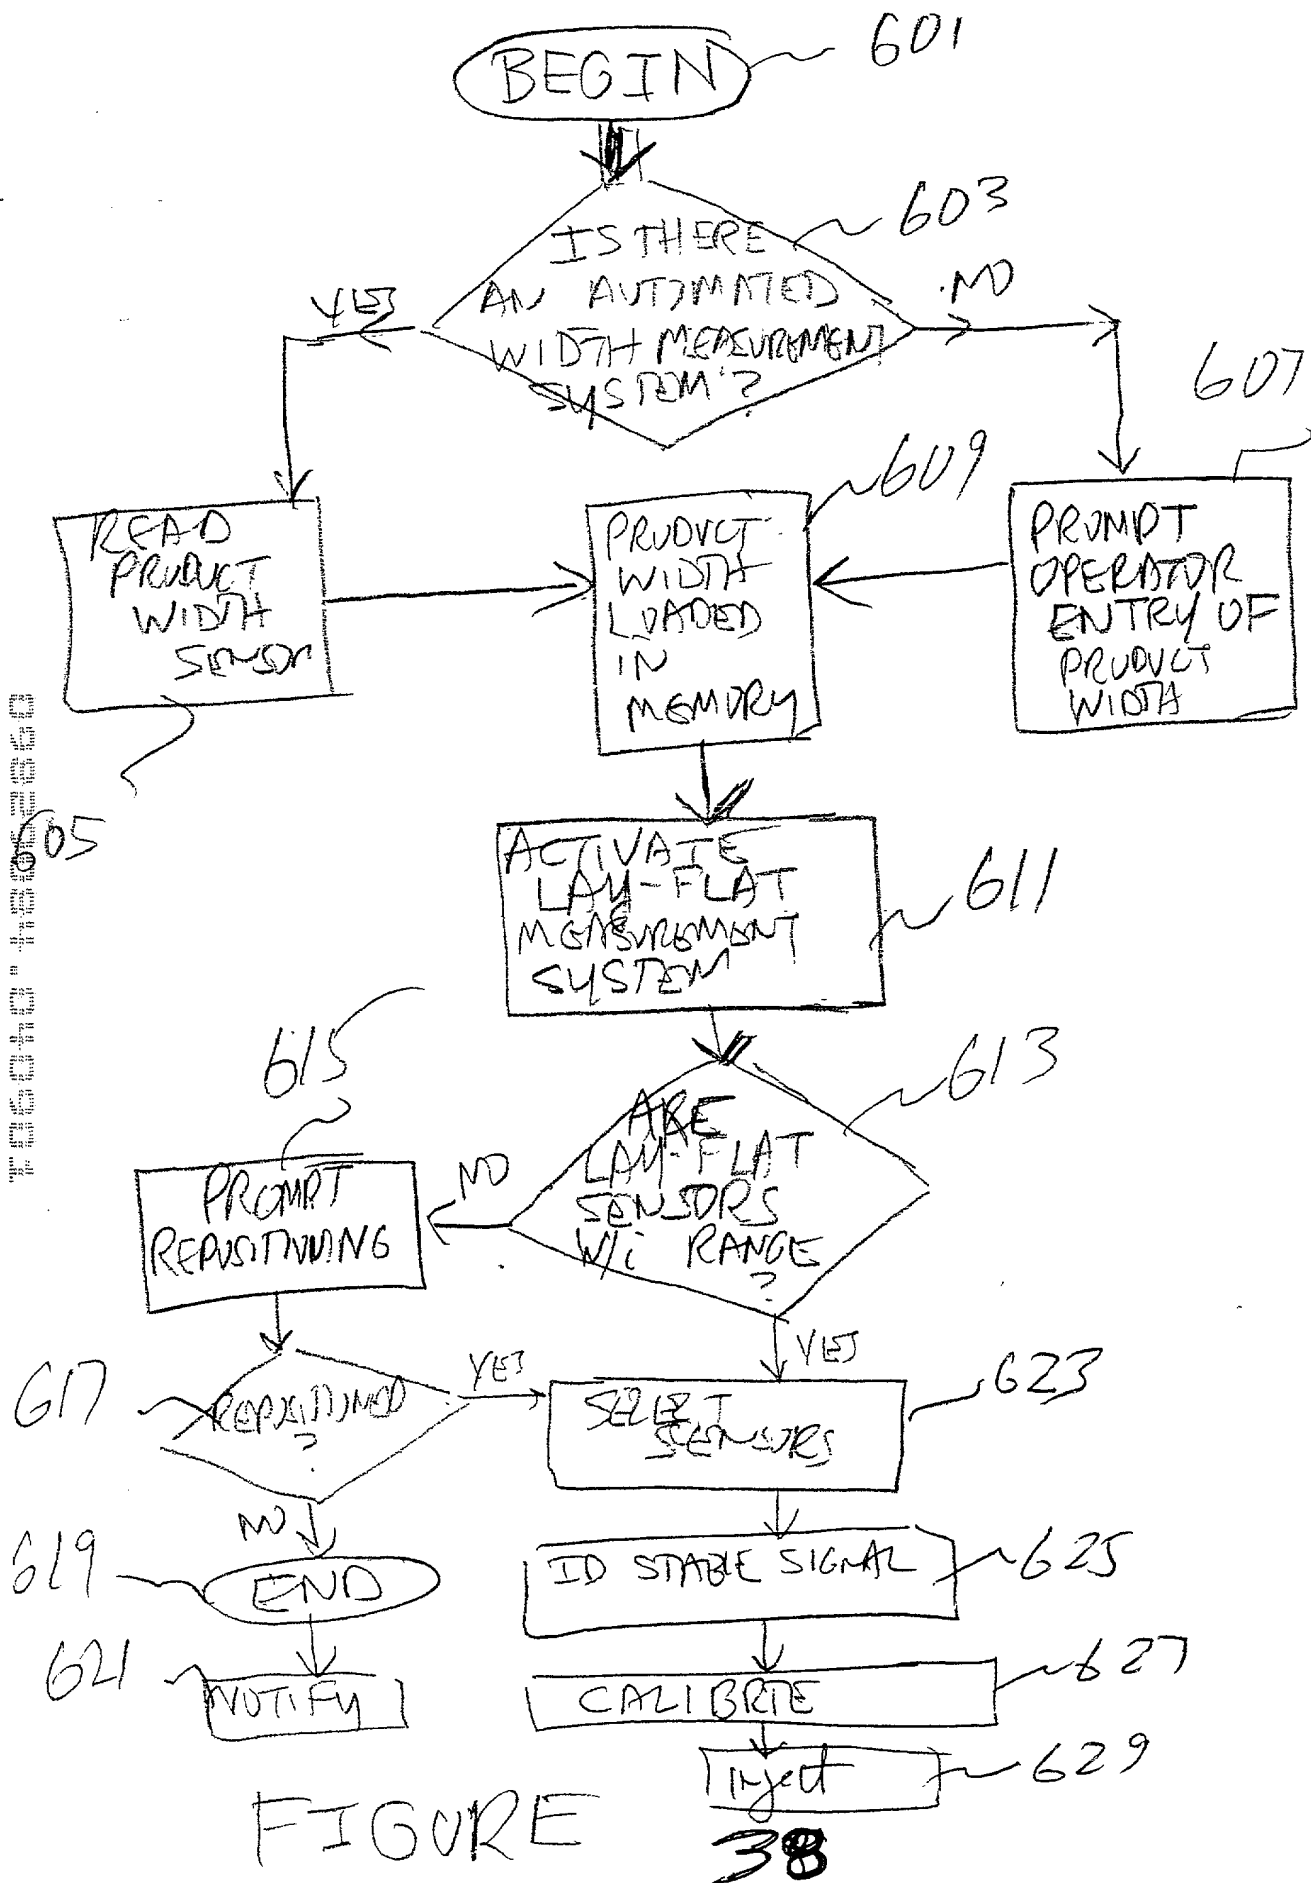 BEGIN
601
IS THERE
AN AUTOMATED
WIDTH MEASUREMENT
SYSTEM?
603
YES
NO
607
READ
PRODUCT
WIDTH
SENSOR
605
PRODUCT
WIDTH
LOADED
IN
MEMORY
609
PROMPT
OPERATOR
ENTRY OF
PRODUCT
WIDTH
ACTIVATE
LAY-FLAT
MEASUREMENT
SYSTEM
611
615
ARE
LAY-FLAT
SENSORS
W/i RANGE
?
613
NO
PROMPT
REPOSITIONING
YES
617
REPOSITIONED
?
YES
SELECT
SENSORS
623
NO
619
END
ID STABLE SIGNAL
625
621
NOTIFY
CALIBRTE
627
inject
629
FIGURE 38